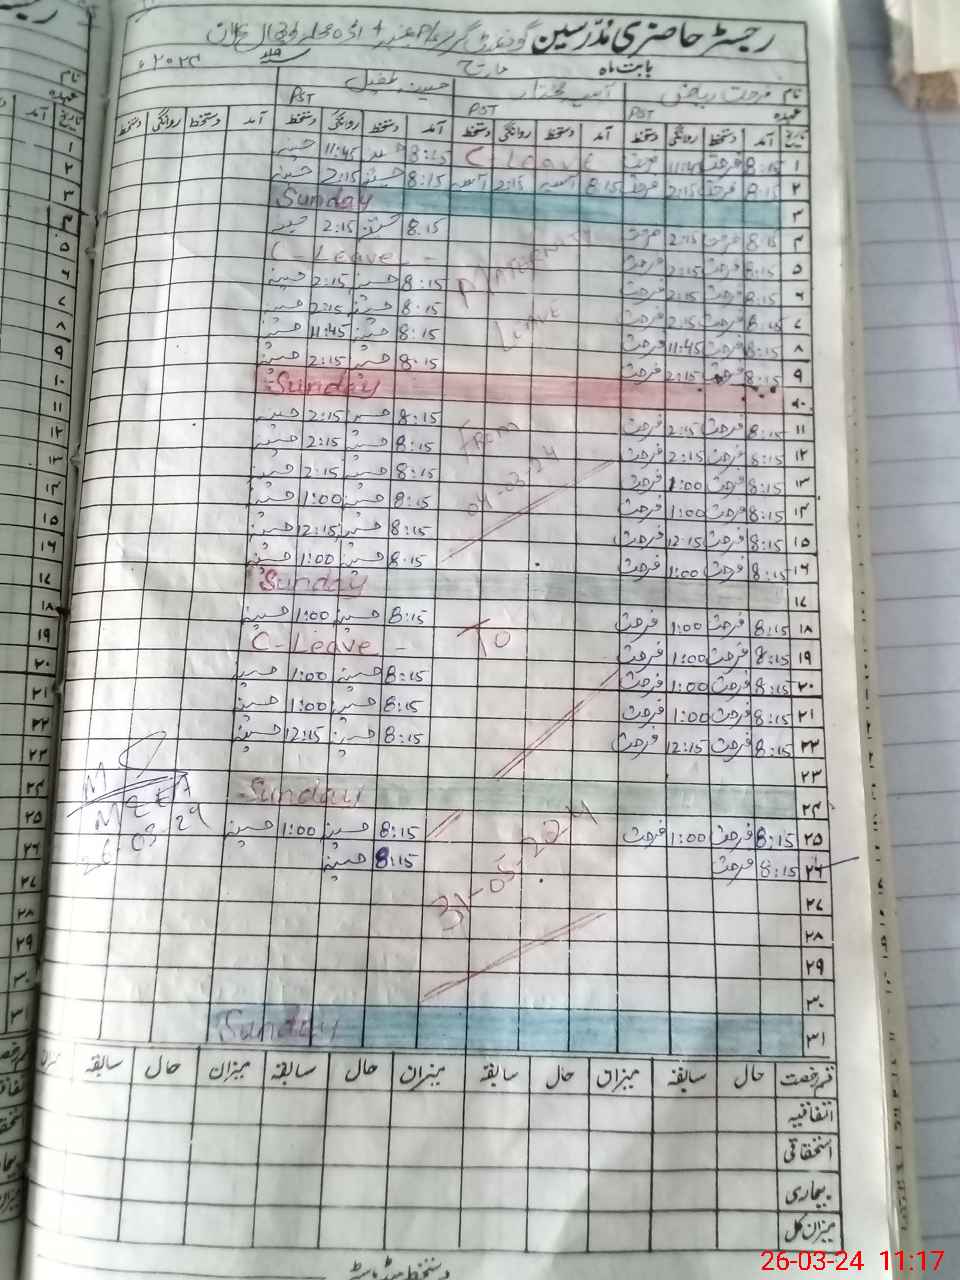 رجسٹر حاضری مدرسین گورنمنٹ گرلز
بابت ماہ مارچ ۲۰۲۴ء
نام فرحت ریاض آسیہ مختار حسینہ طفیل
عہدہ PST PST PST
تاریخ آمد دستخط روانگی دستخط آمد دستخط روانگی دستخط آمد دستخط روانگی دستخط آمد دستخط روانگی دستخط
۱ 8:15 فرحت 11:45 فرحت C-Leave 8:15 حسینہ 11:45 حسینہ
۲ 8:15 فرحت 2:15 فرحت 8:15 آسیہ 2:15 آسیہ 8:15 حسینہ 2:15 حسینہ
۳ Sunday
۴ 8:15 فرحت 2:15 فرحت 8:15 حسینہ 2:15 حسینہ
۵ 8:15 فرحت 2:15 فرحت MATERNITY C-Leave -
۶ 8:15 فرحت 2:15 فرحت 8:15 حسینہ 2:15 حسینہ
۷ 8:15 فرحت 2:15 فرحت Leave 8:15 حسینہ 2:15 حسینہ
۸ 8:15 فرحت 11:45 فرحت 8:15 حسینہ 11:45 حسینہ
۹ 8:15 فرحت 2:15 فرحت 8:15 حسینہ 2:15 حسینہ
۱۰ Sunday
۱۱ 8:15 فرحت 2:15 فرحت FROM 8:15 حسینہ 2:15 حسینہ
۱۲ 8:15 فرحت 2:15 فرحت 8:15 حسینہ 2:15 حسینہ
۱۳ 8:15 فرحت 1:00 فرحت 04-03-24 8:15 حسینہ 2:15 حسینہ
۱۴ 8:15 فرحت 1:00 فرحت 8:15 حسینہ 1:00 حسینہ
۱۵ 8:15 فرحت 12:15 فرحت 8:15 حسینہ 12:15 حسینہ
۱۶ 8:15 فرحت 1:00 فرحت 8:15 حسینہ 1:00 حسینہ
۱۷ Sunday
۱۸ 8:15 فرحت 1:00 فرحت To 8:15 حسینہ 1:00 حسینہ
۱۹ 8:15 فرحت 1:00 فرحت C-Leave -
۲۰ 8:15 فرحت 1:00 فرحت 8:15 حسینہ 1:00 حسینہ
۲۱ 8:15 فرحت 1:00 فرحت 8:15 حسینہ 1:00 حسینہ
۲۲ 8:15 فرحت 12:15 فرحت 8:15 حسینہ 12:15 حسینہ
۲۳
۲۴ Sunday
۲۵ 8:15 فرحت 1:00 فرحت 8:15 حسینہ 1:00 حسینہ
۲۶ 8:15 فرحت 31-05-2024 8:15 حسینہ
۲۷
۲۸
۲۹
۳۰
۳۱ Sunday
قسم رخصت حال سابقہ میزان حال سابقہ میزان حال سابقہ میزان حال سابقہ
اتفاقیہ
استحقاقی
بیماری
میزان کل
دستخط ہیڈ ماسٹر
26-03-24 11:17